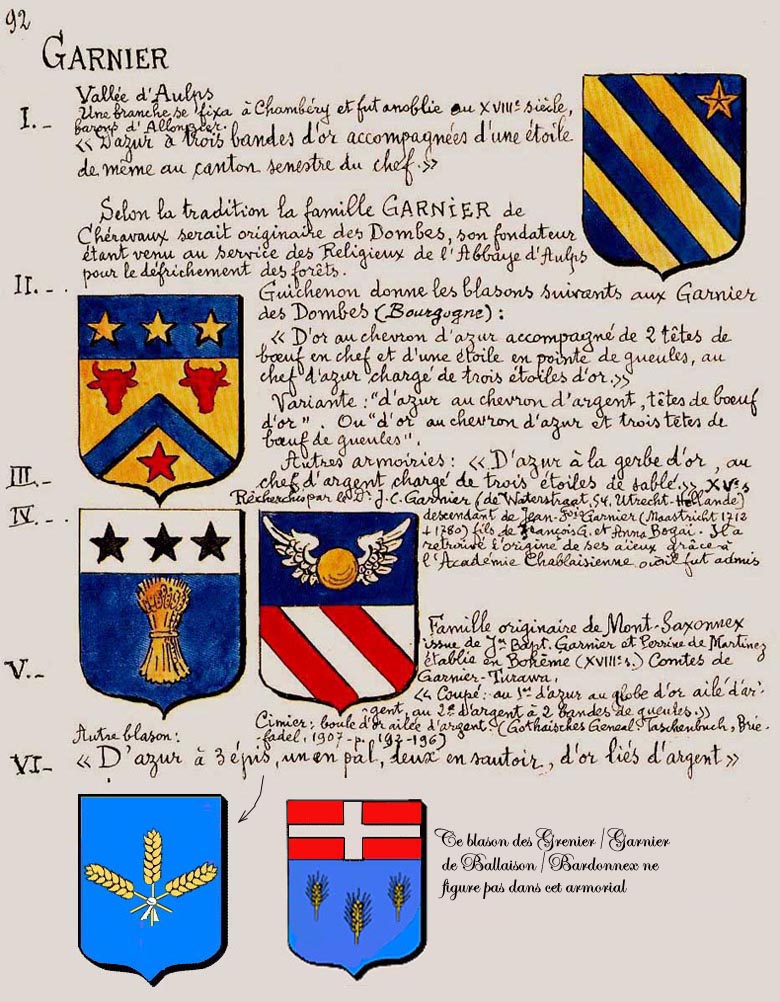 92
GARNIER
Vallée d'Aulps
I._ Une branche se fixa à Chambéry et fut anoblie au XVIIIe siècle,
barons d'Allonzier.
« D'azur à trois bandes d'or accompagnées d'une étoile
de même au canton senestre du chef.»
Selon la tradition la famille GARNIER de
Chéravaux serait originaire des Dombes, son fondateur
étant venu au service des Religieux de l'Abbaye d'Aulps
pour le défrichement des forêts.
II._ _. Guichenon donne les blasons suivants aux Garnier
des Dombes (Bourgogne) :
« D'or au chevron d'azur accompagné de 2 têtes de
bœuf en chef et d'une étoile en pointe de gueules, au
chef d'azur chargé de trois étoiles d'or.»
Variante : "d'azur au chevron d'argent, têtes de bœuf
d'or". Ou "d'or au chevron d'azur et trois têtes de
bœuf de gueules".
III._ Autres armoiries : « D'azur à la gerbe d'or, au
chef d'argent chargé de trois étoiles de sable.» XVe s
Recherches par le Dr J.C. Garnier (de Waterstraat, 54, Utrecht-Hollande)
IV._ _. descendant de Jean-Fois Garnier (Maastricht 1712
+ 1780) fils de François G. et Anna Bogai. Il a
retrouvé l'origine de ses aïeux grâce à
l'Académie Chablaisienne où il fut admis
Famille originaire de Mont-Saxonnex
issue de Jn Bapt. Garnier et Perrine de Martinez
V._ établie en Bohême (XVIIIe s.) Comtes de
Garnier-Turawa.
« Coupé : au 1er d'azur au globe d'or ailé d'ar-
gent, au 2e d'argent à 2 bandes de gueules.»
Cimier : boule d'or ailée d'argent. (Gothaisches Geneal. Taschenbuch, Brie-
fadel, 1907 - p. 192-196)
Autre blason :
VI._ « D'azur à 3 épis, un en pal, deux en sautoir, d'or liés d'argent »
Ce blason des Grenier / Garnier
de Ballaison / Bardonnex ne
figure pas dans cet armorial